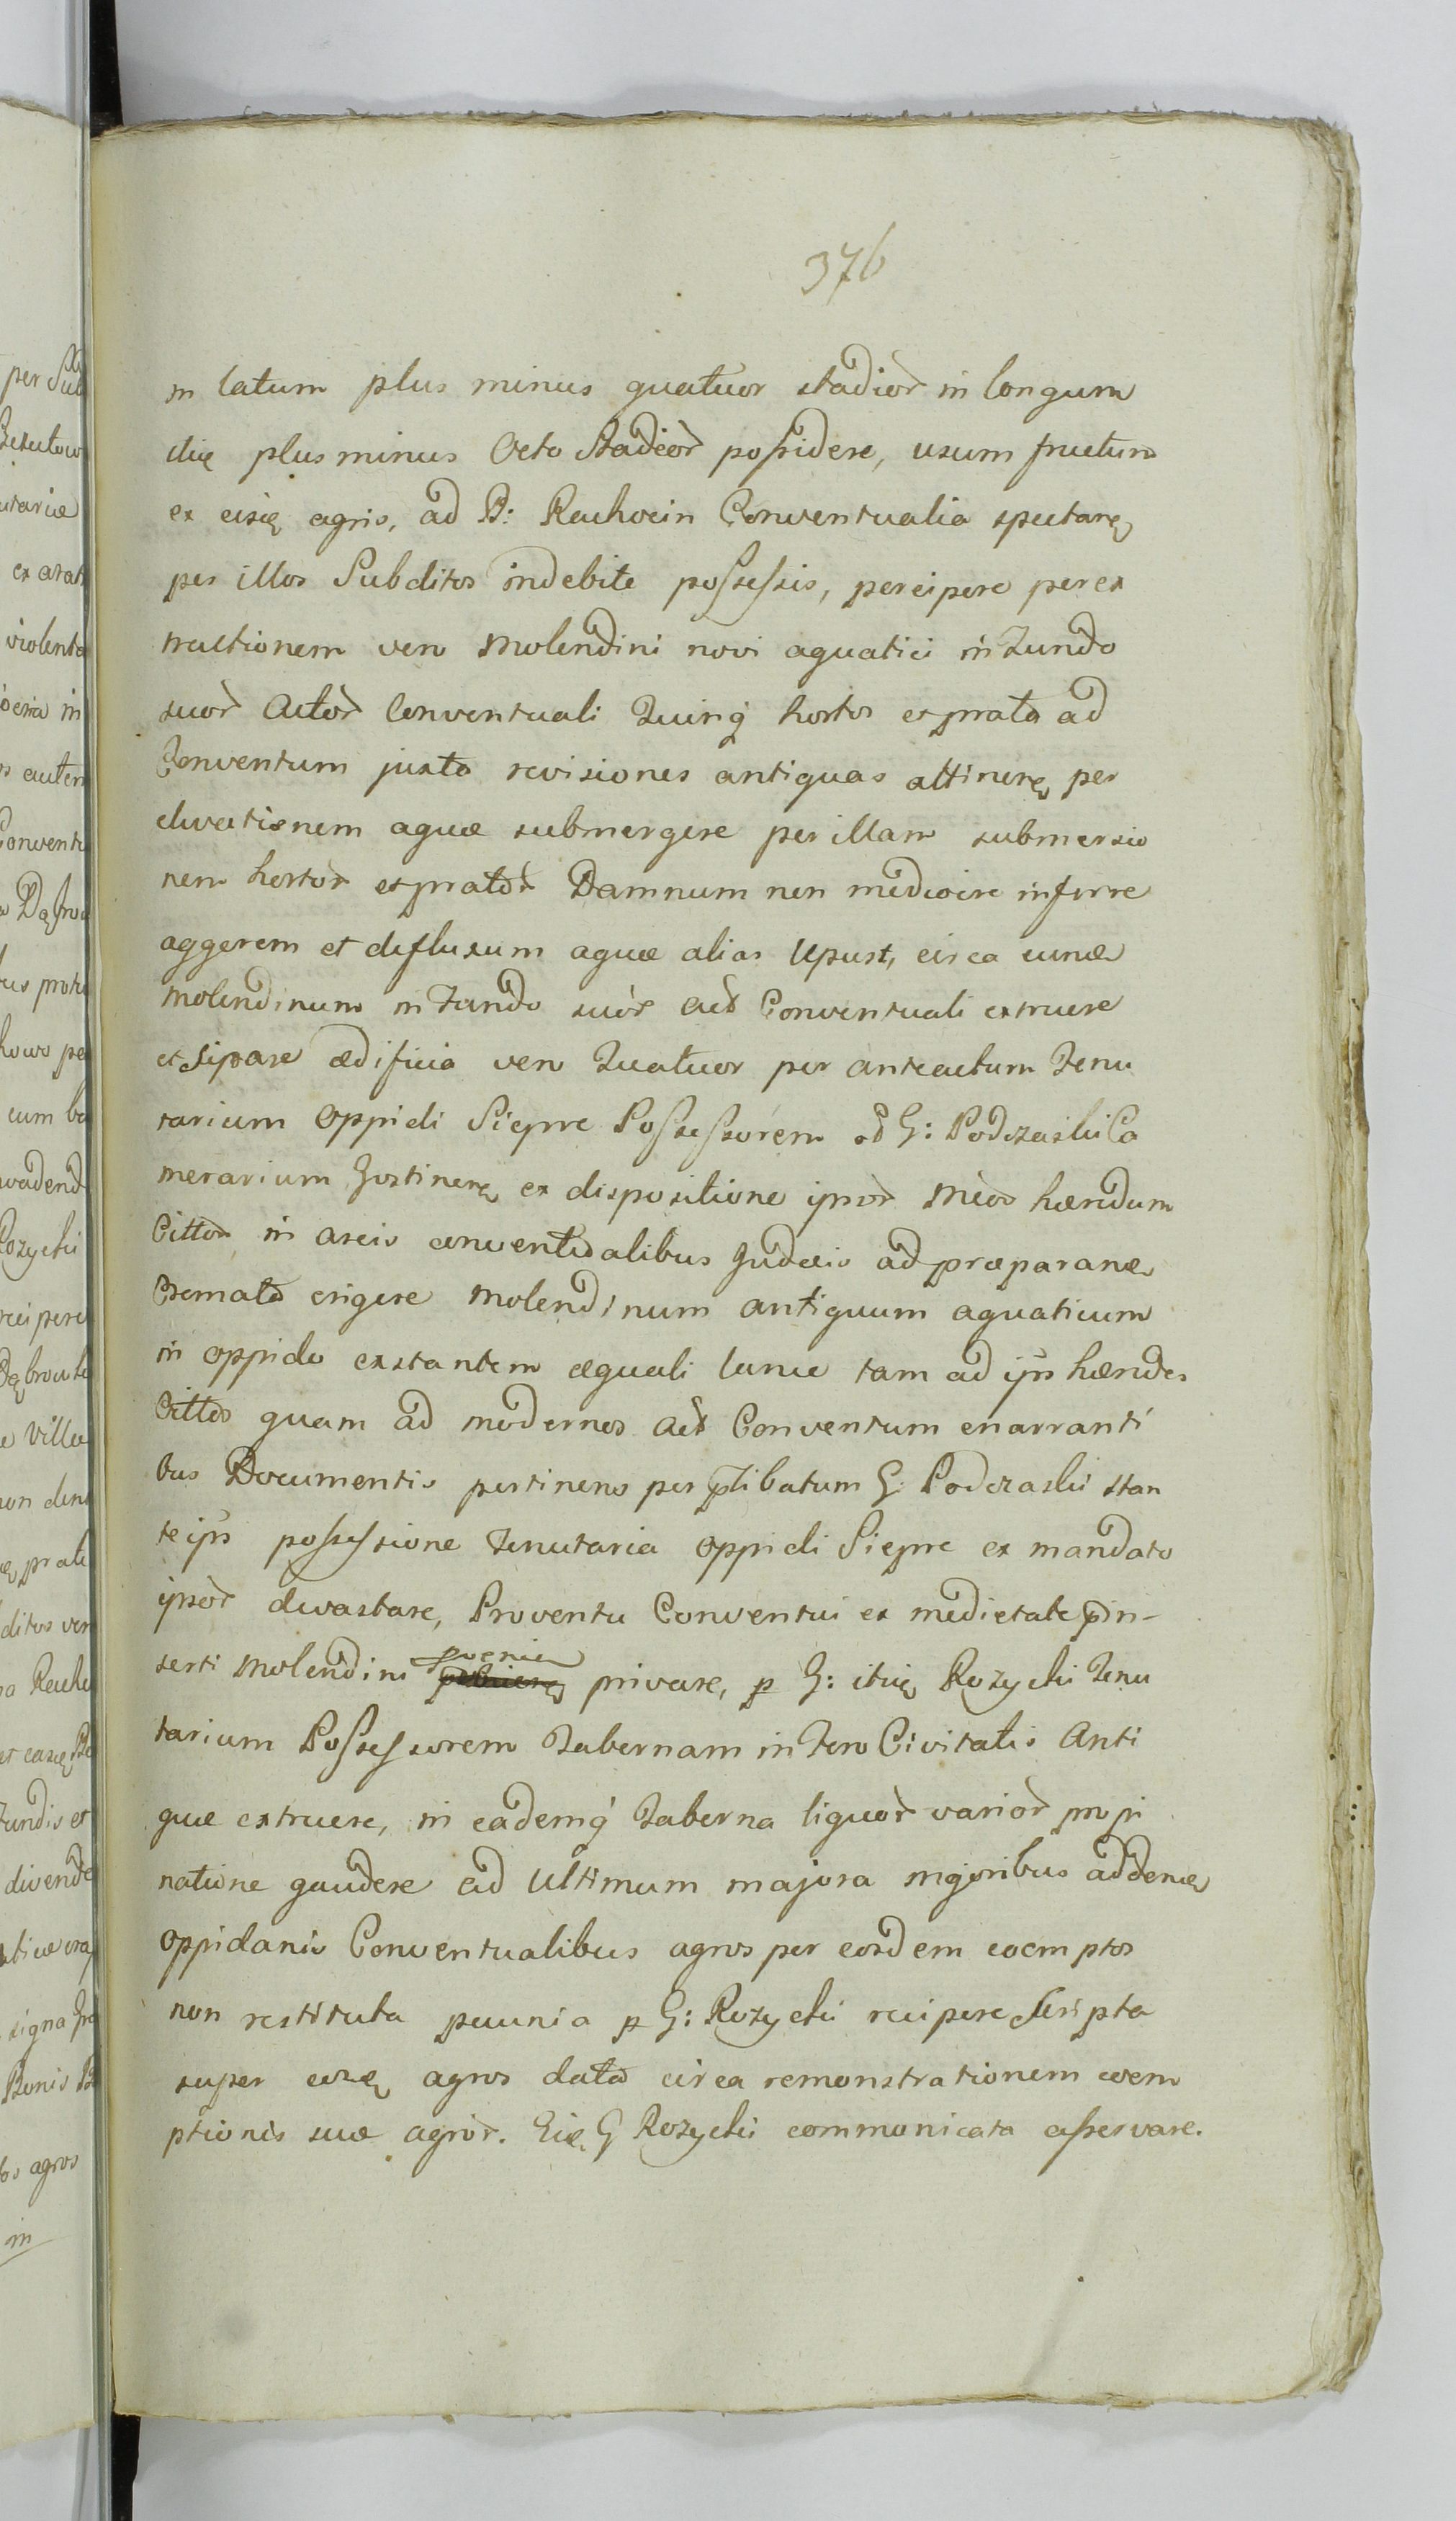 376
in latum plus minus quatuor stadior in longum
itię plus minus Octo Stadior possidere, usum fructum
ex eisię agris, ad B: Rachocin Conventualia spectanę
per illos Subditos indebite possessis, percipere per ex
tructionem vero Molendini novi aquatici in Fundo
suor Actor Conventuali Quinq hortos et prata ad
Conventum juxta revisiones antiquas attinenę per
elevationem aquæ submergere per illam submersio
nem hortor et prator Damnum non mediocre inferre
aggerem et defluxum aquæ alias Upust, circa eund
Molendinum in Fundo suor Act Conventuali extruere
et sipare ædificia vero Quatuor per anteactum Tenu
tarium Oppidi Sieprc Possessorem G: Podczaski Ca
merarium Gostinenę ex dispositione ipsor Mcos hæredum
Cittor in areis conventualibus Judæis ad præparand
Cremata erigere Molendinum antiquum aquaticum
in oppido exstantem æquali lance tam ad ips hæredes
Cittos quam ad modernos Act Conventum enarranti
bus Documentis pertinens per plibatum G: Podczaski stan
te ips possessione Tenutaria Oppidi Sieprc ex mandato
ipsor devastare, Proventu Conventui ex medietate pin-
serti Molendini proenien privare, p G: itię Rozycki Tenu
tarium Possessorem Tabernam in Foro Civitatis Anti
quæ extruere, in eademq Taberna liquor varior propi
natione gaudere ad Ultimum majora majoribus addend
Oppidanis Conventualibus agros per eosdem coemptos
non restituta pecunia p G: Rozycki recipere Scripta
super eosię agros data circa remonstrationem coem
ptionis suæ agror. Eię G Rozycki communicata asservare.
per Sub
utariæ
ex arat
violenta
in
autem
Convent
cum bo
Rozycki
recipere
Villæ
prat
ditos ver
Fundis et
signa
Bonis
agros
in